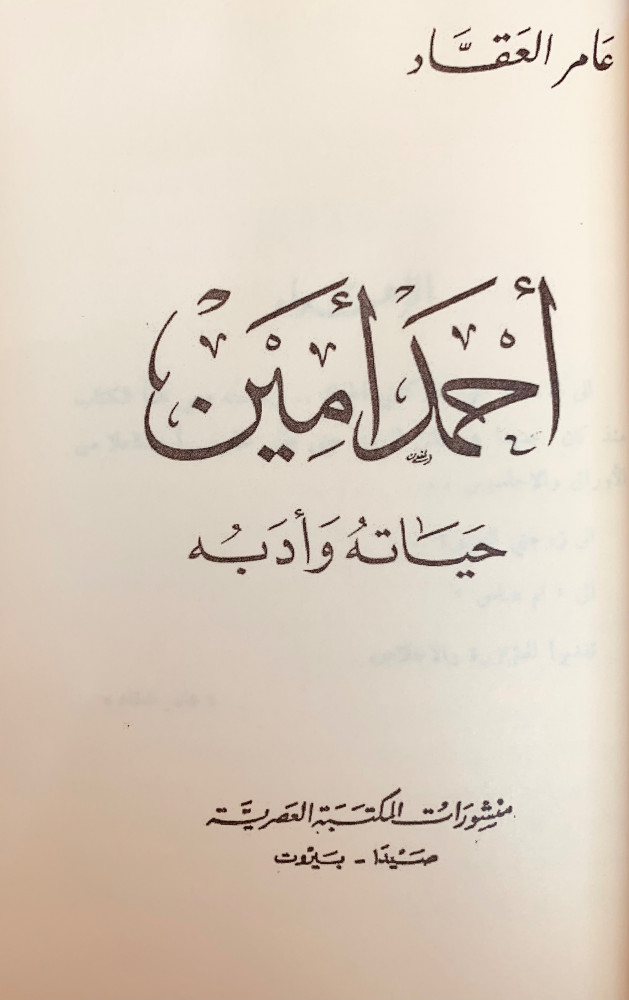 عَامر العَقَّاد
أَحْمَد أَمِيْن
حَيَاتهُ وَأدَبُه
منشورَاتُ المكتبَة العَصريَّة
صَيْدَا - بَيروت